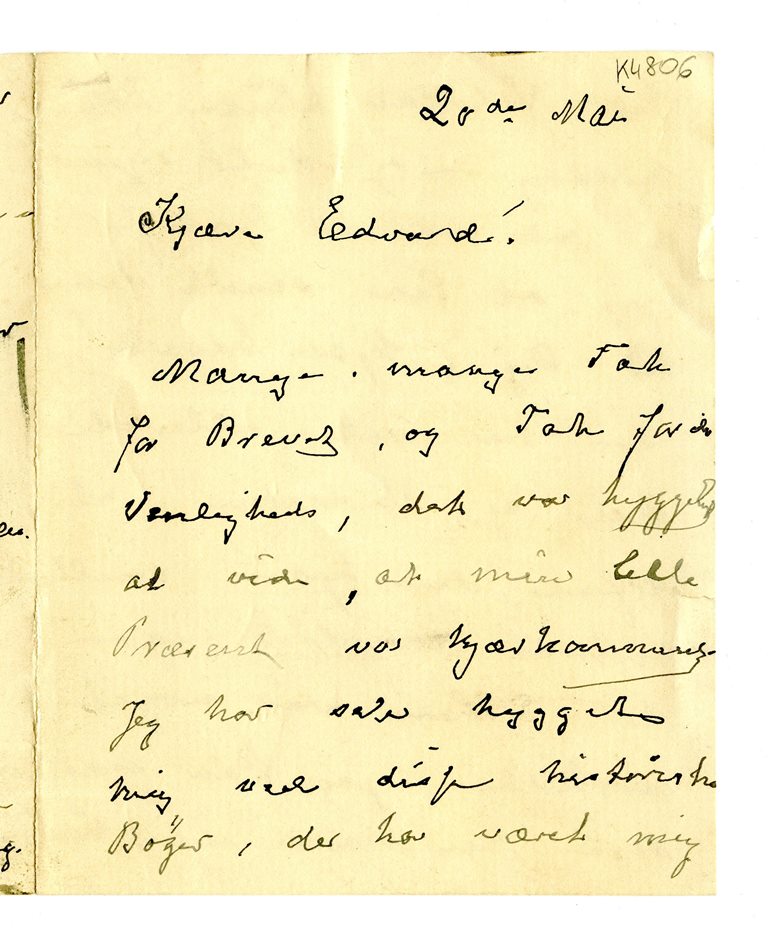 K4806
20de Mai
Kjære Edvard!
Mange, mange Tak
for Brevet, og Tak for
Venlighed, det var hyggeligt
at vide, at min lille
Præsent var kjærkommen,
Jeg har selv hygget
mig ved disse historiske
Bøger, der har været mig